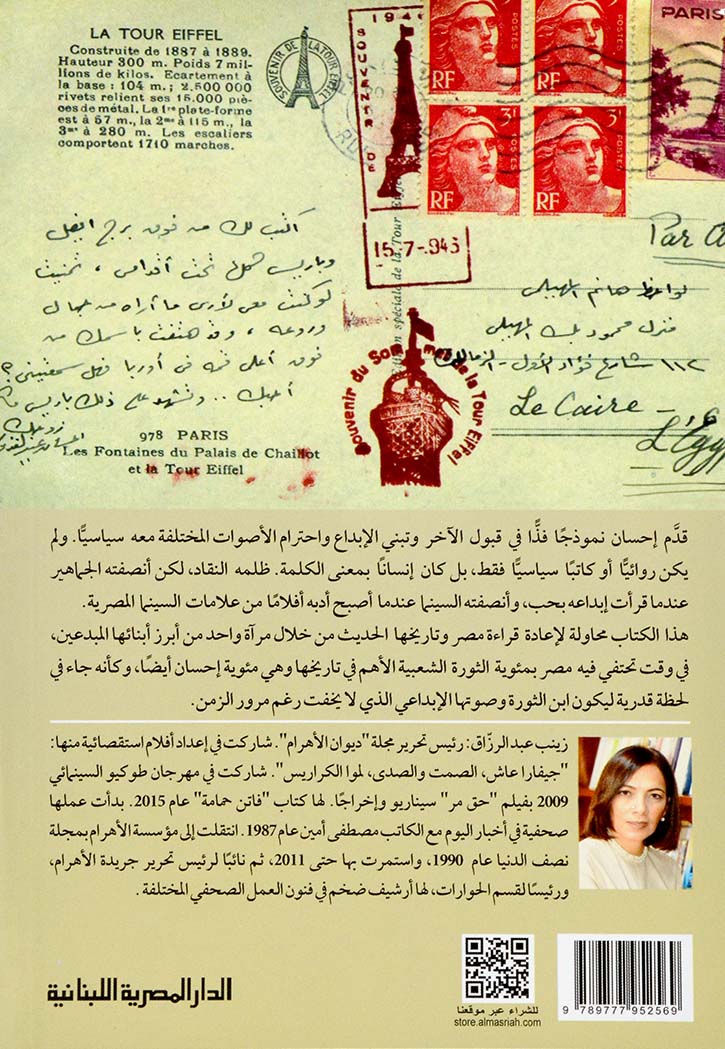 LA TOUR EIFFEL
Construite de 1887 à 1889.
Hauteur 300 m. Poids 7 mil-
lions de kilos. Ecartement à
la base : 104 m.; 2.500 000
rivets relient ses 15.000 piè-
ces de métal. La 1re plate-forme
est à 57 m., la 2me à 115 m., la
3me à 280 m. Les escaliers
comportent 1710 marches.
SOUVENIR DE LA TOUR EIFFEL
SOUVENIR DE
RF
POSTES
3F
RF
RF
PARIS
15-7-946
spéciale de la Tour Eiffel
Par
اكتب لك من فوق برج ايفل
وباريس كلها تحت أقدامى ، تمنيت
لو كنت معى لأرى ما أراه من جمال
وروعه ، وقد هتفت باسمك من
فوق أعلى قمه فى أوربا فهل سمعتينى ؟
أحبك .. وتشهد على ذلك باريس
زوجك
لواحظ هانم المهيلمى
منزل محمود بك المهيلمى
١١٢ شارع فؤاد الأول - الزمالك
Le Caire -
L'Egy
Souvenir du Sommet de la Tour Eiffel
978 PARIS
Les Fontaines du Palais de Chaillot
et la Tour Eiffel
قدَّم إحسان نموذجًا فذًّا في قبول الآخر وتبني الإبداع واحترام الأصوات المختلفة معه سياسيًّا. ولم
يكن روائيًّا أو كاتبًا سياسيًّا فقط، بل كان إنسانًا بمعنى الكلمة. ظلمه النقاد، لكن أنصفته الجماهير
عندما قرأت إبداعه بحب، وأنصفته السينما عندما أصبح أدبه أفلامًا من علامات السينما المصرية.
هذا الكتاب محاولة لإعادة قراءة مصر وتاريخها الحديث من خلال مرآة واحد من أبرز أبنائها المبدعين،
في وقت تحتفي فيه مصر بمئوية الثورة الشعبية الأهم في تاريخها وهي مئوية إحسان أيضًا، وكأنه جاء في
لحظة قدرية ليكون ابن الثورة وصوتها الإبداعي الذي لا يخفت رغم مرور الزمن.
زينب عبد الرزّاق: رئيس تحرير مجلة "ديوان الأهرام". شاركت في إعداد أفلام استقصائية منها:
"جيفارا عاش، الصمت والصدى، لموا الكراريس". شاركت في مهرجان طوكيو السينمائي
2009 بفيلم "حق مر" سيناريو وإخراجًا. لها كتاب "فاتن حمامة" عام 2015. بدأت عملها
صحفية في أخبار اليوم مع الكاتب مصطفى أمين عام 1987. انتقلت إلى مؤسسة الأهرام بمجلة
نصف الدنيا عام 1990، واستمرت بها حتى 2011، ثم نائبًا لرئيس تحرير جريدة الأهرام،
ورئيسًا لقسم الحوارات، لها أرشيف ضخم في فنون العمل الصحفي المختلفة.
الدار المصرية اللبنانية
للشراء عبر موقعنا
store.almasriah.com
9 789777 952569